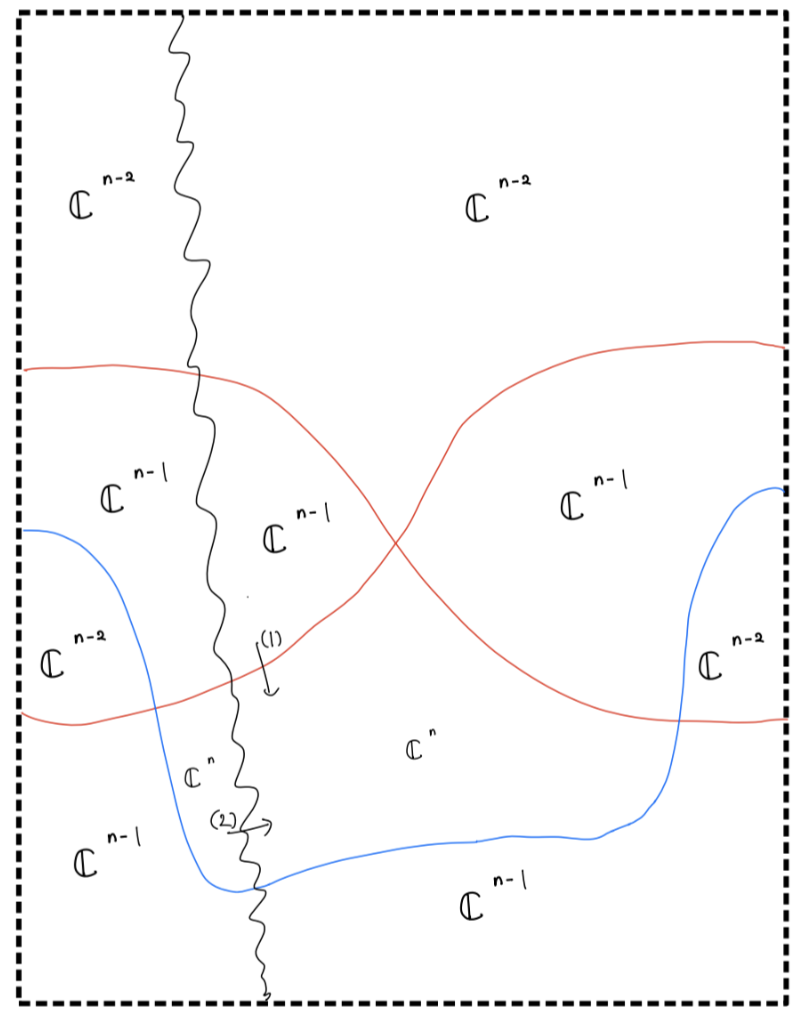 ℂⁿ⁻² ℂⁿ⁻²
ℂⁿ⁻¹ ℂⁿ⁻¹ ℂⁿ⁻¹
(1)
ℂⁿ⁻² ℂⁿ⁻²
ℂⁿ ℂⁿ
(2)
ℂⁿ⁻¹ ℂⁿ⁻¹